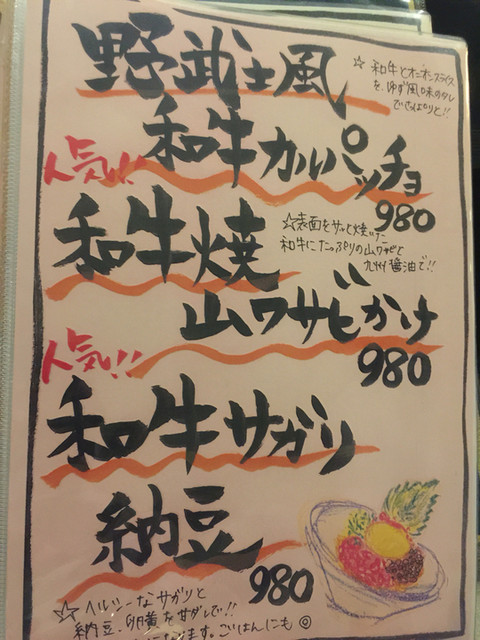 野武士風
☆和牛とオニオンスライス
を、ゆず風味のタレ
でさっぱりと!!
和牛カルパッチョ
980
人気!!
和牛焼
☆表面をサッと焼いた
和牛にたっぷりの山ワサビと
九州醤油で!!
山ワサビかけ
980
人気!!
和牛サガリ
納豆
980
☆ヘルシーなサガリと
納豆、卵黄を甘ダレで!!
なります。ごはんにも◎